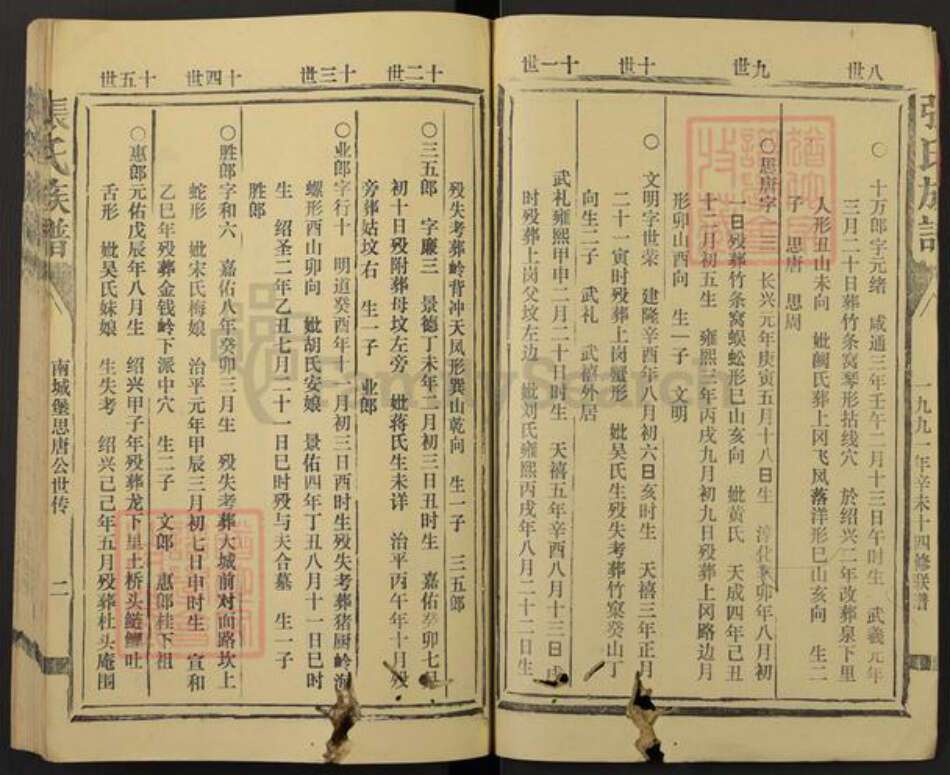 八世
九世
十世
十一世
○ 十万郎字元绪 咸通三年壬午二月十三日午时生 武義元年
三月二十日葬竹条窝琴形拈线穴 於绍兴二年改葬泉下里
人形丑山未向 妣阙氏葬上冈飞凤落洋形巳山亥向 生二
子 思唐 思周
○思唐字 三 长兴元年庚寅五月十八日生 淳化 卯年八月初
一日殁葬竹条窝蜈蚣形巳山亥向 妣黄氏 天成四年己丑
十二月初五生 雍熙三年丙戌九月初九日殁葬上冈路边月
形卯山酉向 生一子 文明
○ 文明字世荣 建隆辛酉年八月初六日亥时生 天禧三年正月
二十一寅时殁葬上岗蟹形 妣吴氏生殁失考葬竹窠癸山丁
向生二子 武礼 武禧外居
武礼雍熙甲申二月二十日时生 天禧五年辛酉八月十三日戌
时殁葬上岗父坟左边 妣刘氏雍熙丙戌年八月二十二日生
张氏族谱
一九九一年辛未十四修联谱
十二世
十三世
十四世
十五世
殁失考葬岭背冲天凤形巽山乾向 生一子 三五郎
○三五郎 字廉三 景德丁未年二月初三日丑时生 嘉佑癸卯七月
初十日殁附葬母坟左旁 妣蒋氏生未详 治平丙午年十月殁
旁葬姑坟右 生一子 业郎
○业郎字行十 明道癸酉年十一月初三日酉时生殁失考葬猪厨岭海
螺形酉山卯向 妣胡氏安娘 景佑四年丁丑八月十一日巳时
生 绍圣二年乙丑七月二十一日巳时殁与夫合墓 生一子
胜郎
○胜郎字和六 嘉佑八年癸卯三月生 殁失考葬大城前对面路坎上
蛇形 妣宋氏梅娘 治平元年甲辰三月初七日申时生 宣和
乙巳年殁葬金钱岭下派中穴 生二子 文郎 惠郎桂下祖
○惠郎元佑戊辰年八月生 绍兴甲子年殁葬龙下里土桥头 鲤吐
舌形 妣吴氏妹娘 生失考 绍兴己己年五月殁葬社头庵围
南城堡思唐公世传
二
張氏族譜
FamilySearch